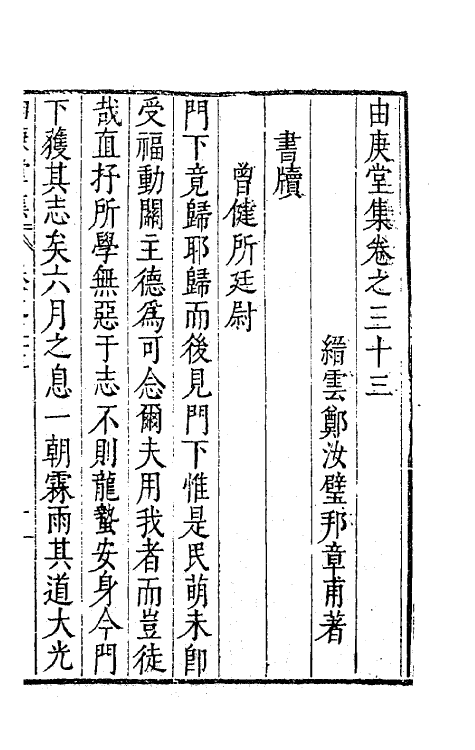 由庚堂集卷之三十三
縉雲鄭汝璧邦章甫著
書牘
曾健所廷尉
門下竟歸耶歸而後見門下惟是民萌未卽
受福動關主德爲可念爾夫用我者而豈徒
哉直抒所學無惡于志不則龍蟄安身今門
下獲其志矣六月之息一朝霖雨其道大光